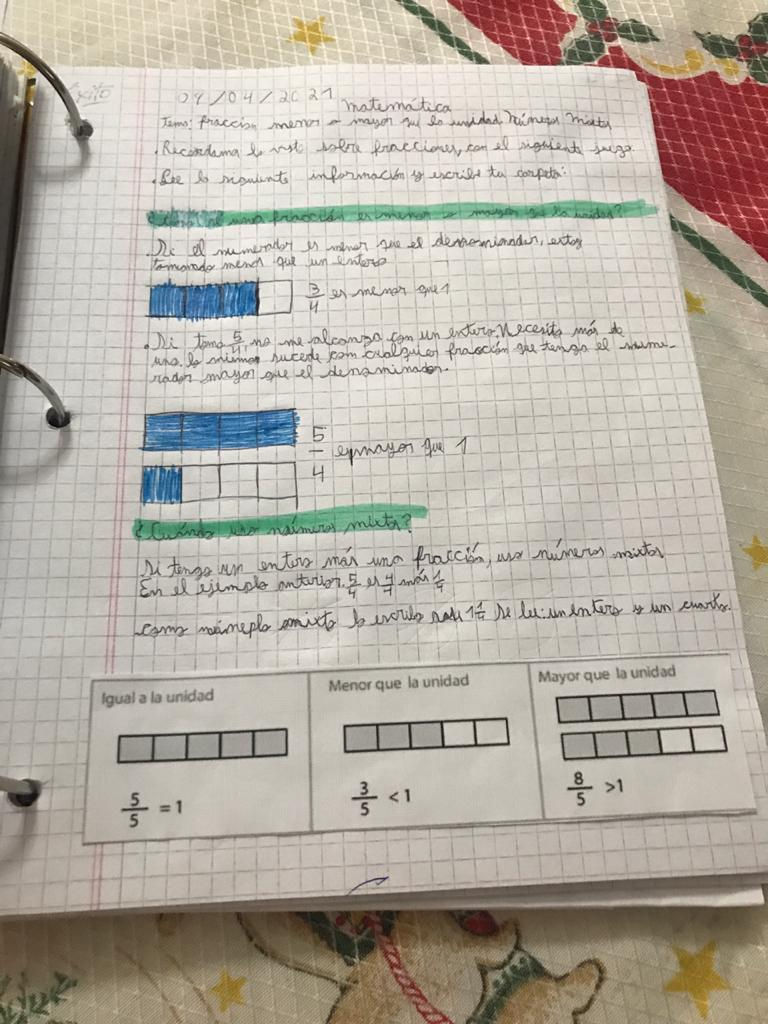 Matemática
Tema: fracción menor o mayor que la unidad. Números mixtos
. Recordamos lo visto sobre fracciones, con el siguiente juego.
. Lee la siguiente información y escribe tu carpeta:
una fracción es menor o mayor que la unidad?
. Si el numerador es menor que el denominador, estoy
tomando menos que un entero
3/4 es menor que 1
. Si tomo 5/4, no me alcanza con un entero. Necesito más de
uno. lo mismo sucede con cualquier fracción que tenga el nume-
rador mayor que el denominador.
5/4 es mayor que 1
¿Cuándo uso números mixtos?
Si tengo un entero más una fracción, uso números mixtos
En el ejemplo anterior. 5/4 es 4/4 más 1/4
como mixto lo escribo 1 1/4 Se lee: un entero y un cuarto.
Igual a la unidad
5/5 = 1
Menor que la unidad
3/5 < 1
Mayor que la unidad
8/5 >1